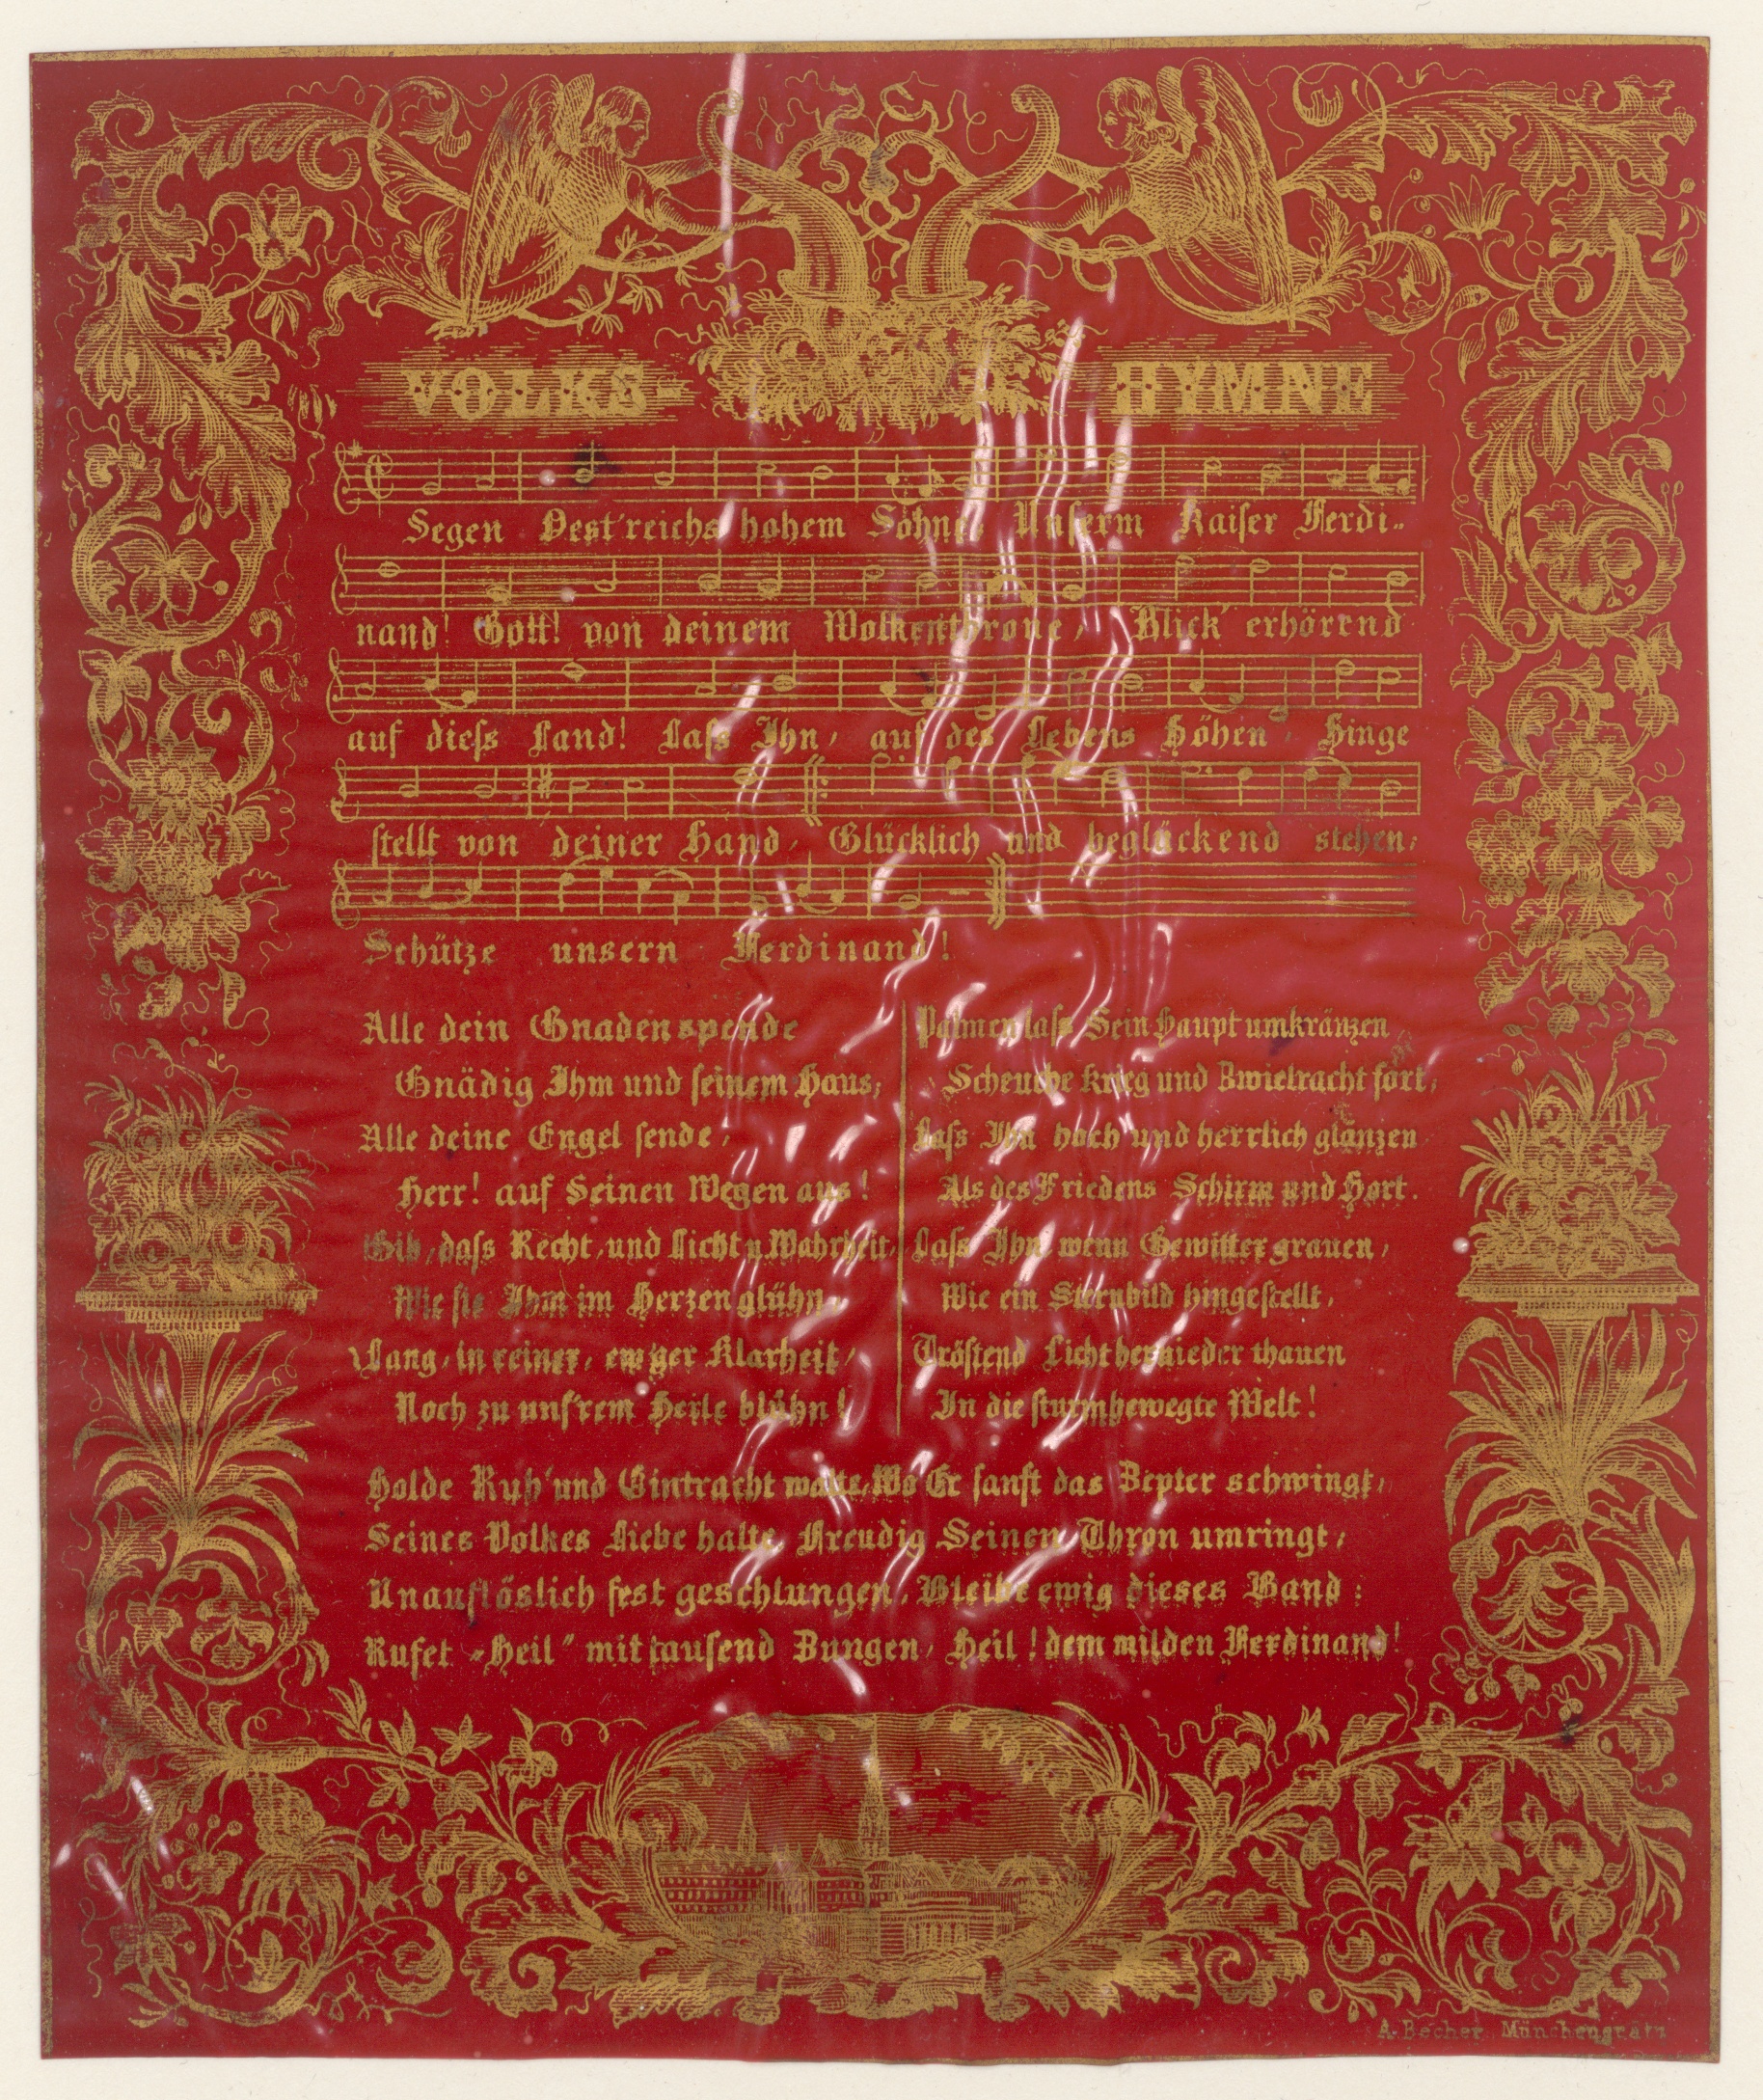 VOLKS- HYMNE
Segen Oest'reichs hohem Sohne Unserm Kaiser Ferdi-
nand! Gott! von deinem Wolkenthrone, Blick' erhörend
auf diess Land! Lass Ihn, auf des Lebens Höhen, Hinge
stellt von deiner Hand, Glücklich und beglückend stehen,
Schütze unsern Ferdinand!
Alle dein Gnadenspende
Gnädig Ihm und seinem Haus,
Alle deine Engel sende,
Herr! auf Seinen Wegen aus!
Gib, dass Recht, und Licht u. Wahrheit,
Wie sie Ihm im Herzen glühn,
Lang, in reiner, ew'ger Klarheit,
Noch zu unsrem Heile blühn!
Palmen lass Sein Haupt umkränzen
Scheuche Krieg und Zwietracht fort,
Lass Ihn hoch und herrlich glänzen
Als des Friedens Schirm und Hort.
Lass Ihn wenn Gewitter grauen,
Wie ein Sternbild hingestellt,
Tröstend Licht hernieder thauen
In die sturmbewegte Welt!
Holde Ruh' und Eintracht walte, Wo Er sanft das Zepter schwingt,
Seines Volkes Liebe halte Freudig Seinen Thron umringt,
Unauflöslich fest geschlungen, Bleibe ewig dieses Band:
Rufet „Heil" mit tausend Zungen, Heil! dem milden Ferdinand!
A. Becher Münchengrätz